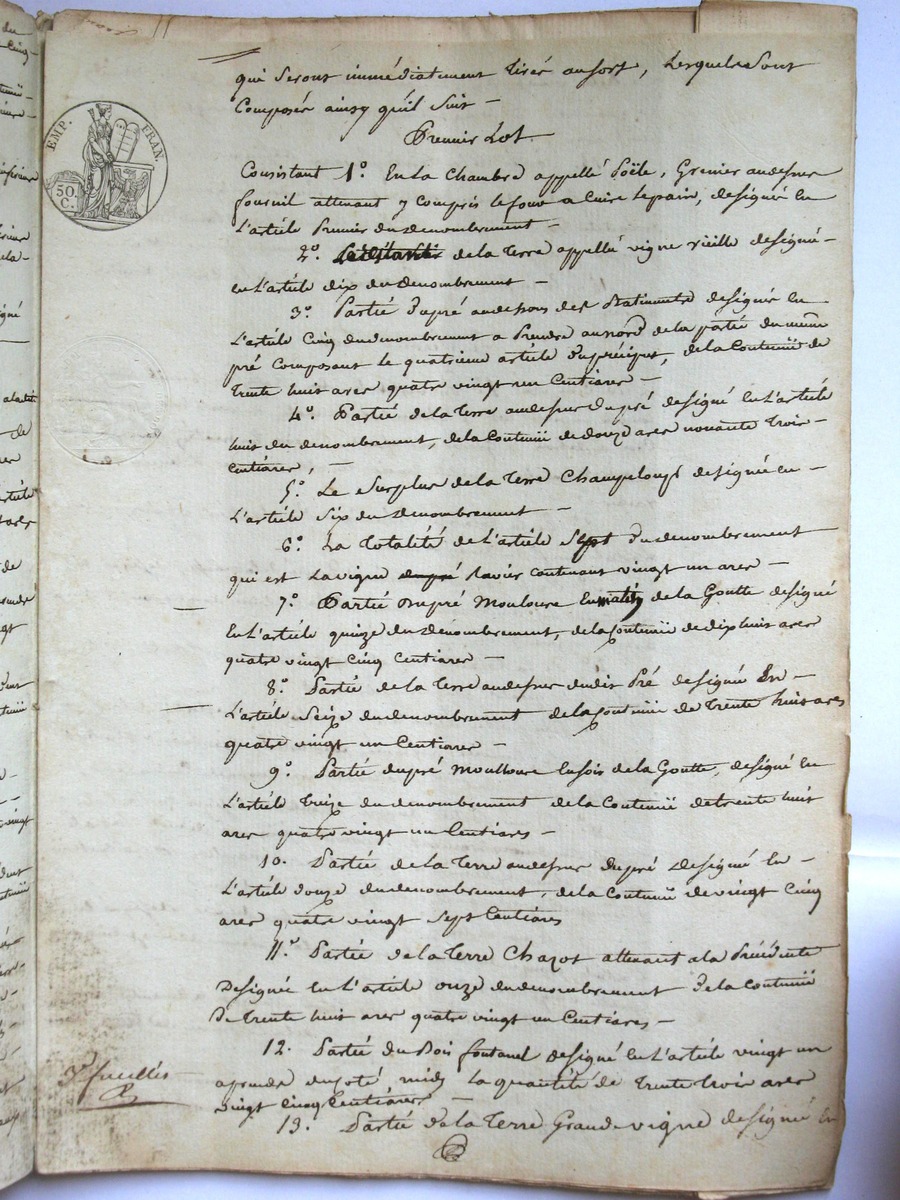 EMP. FRAN.
50 C.
qui seront immédiatement tirés au sort, lesquels sont
Composés ainsy qu'il suit —
Premier Lot
Consistant 1º. En la Chambre appellé Poële, Grenier au dessus
fournil attenant y compris le four a Cuire le pain, designés En
L'article Premier du denombrement —
2º. de la Terre appellé vigne vieille designé —
En L'article dix du denombrement —
3º. Partie du pré au dessous des Batiments designés En
L'article Cinq du denombrement a Prendre au nord de la partie du même
pré composant le quatrieme article du préciput, de la Contenüe de
Trente huit ares quatre vingt un Centiares —
4º. Partie de la Terre au dessus du pré designé En L'article
huit du denombrement, de la Contenüe de douze ares nonante Trois —
Centiares, —
5º. Le Surplus de la Terre Champelong designée en —
L'article Six du denombrement —
6º. La Totalité de L'article Sept du denombrement
qui est La vigne du pré contenant vingt un ares —
7º. Partie du pré Mouloure de la Goutte designé
En L'article quinze du denombrement, de la Contenüe de dix huit ares
quatre vingt Cinq Centiares —
8º. Partie de la Terre au dessus du dit Pré designé En —
L'article Seize du denombrement de la Contenüe de Trente huit ares
quatre vingt un Centiares —
9º. Partie du pré Mouloure de la Goutte, designé En
L'article Treize du denombrement de la Contenüe de trente huit
ares quatre vingt un Centiares —
10. Partie de la Terre au dessus du pré Designé En —
L'article douze du denombrement, de la Contenüe de vingt Cinq
ares quatre vingt Sept Centiares
11º. Partie de la Terre Chazot attenant a la Précédente
Designée En L'article onze du denombrement de la Contenüe
De Trente huit ares quatre vingt un Centiares —
12. Partie du Bois fontanel designé En L'article vingt un
a prendre du coté midy La quantité de Trente Trois ares
vingt Cinq Centiares —
13. Partie de la Terre Grande vigne designé En